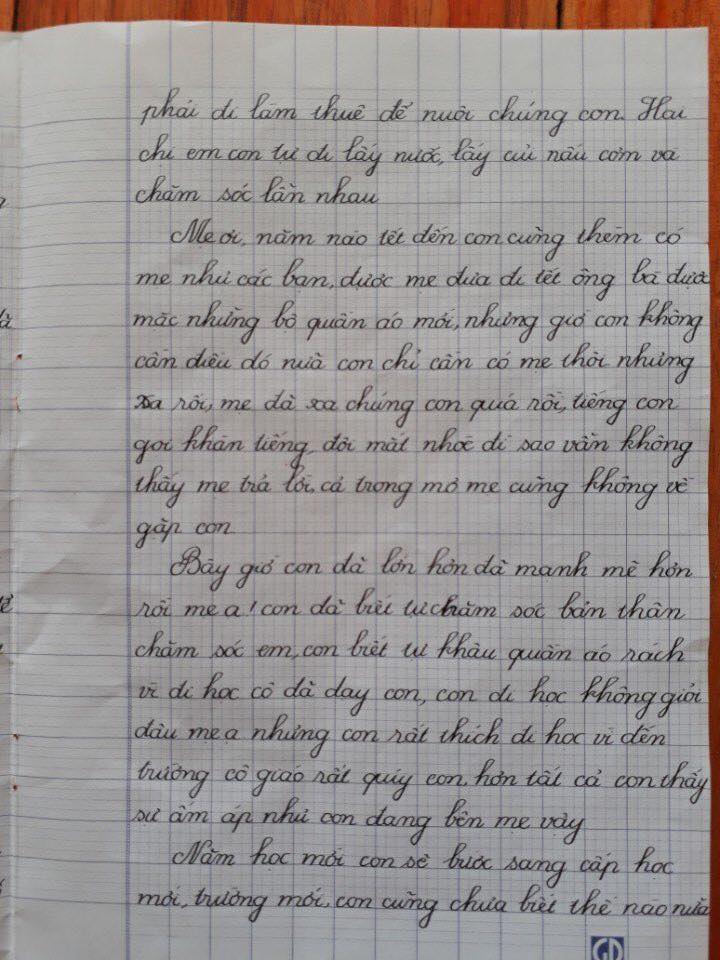 phải đi làm thuê để nuôi chúng con. Hai
chị em con tự đi lấy nước, lấy củi nấu cơm và
chăm sóc lẫn nhau
Mẹ ơi, năm nào tết đến con cũng thèm có
mẹ như các bạn, được mẹ đưa đi tết ông bà được
mặc những bộ quần áo mới, nhưng giờ con không
cần điều đó nữa con chỉ cần có mẹ thôi nhưng
xa rồi, mẹ đã xa chúng con quá rồi, tiếng con
gọi khản tiếng, đôi mắt nhòe đi sao vẫn không
thấy mẹ trả lời, cả trong mơ mẹ cũng không về
gặp con
Bây giờ con đã lớn hơn đã mạnh mẽ hơn
rồi mẹ ạ! con đã biết tự chăm sóc bản thân
chăm sóc em, con biết tự khâu quần áo rách
vì đi học cô đã dạy con, con đi học không giỏi
đâu mẹ ạ nhưng con rất thích đi học vì đến
trường cô giáo rất quý con, hơn tất cả con thấy
sự ấm áp như con đang bên mẹ vậy
Năm học mới con sẽ bước sang cấp học
mới, trường mới, con cũng chưa biết thế nào nữa